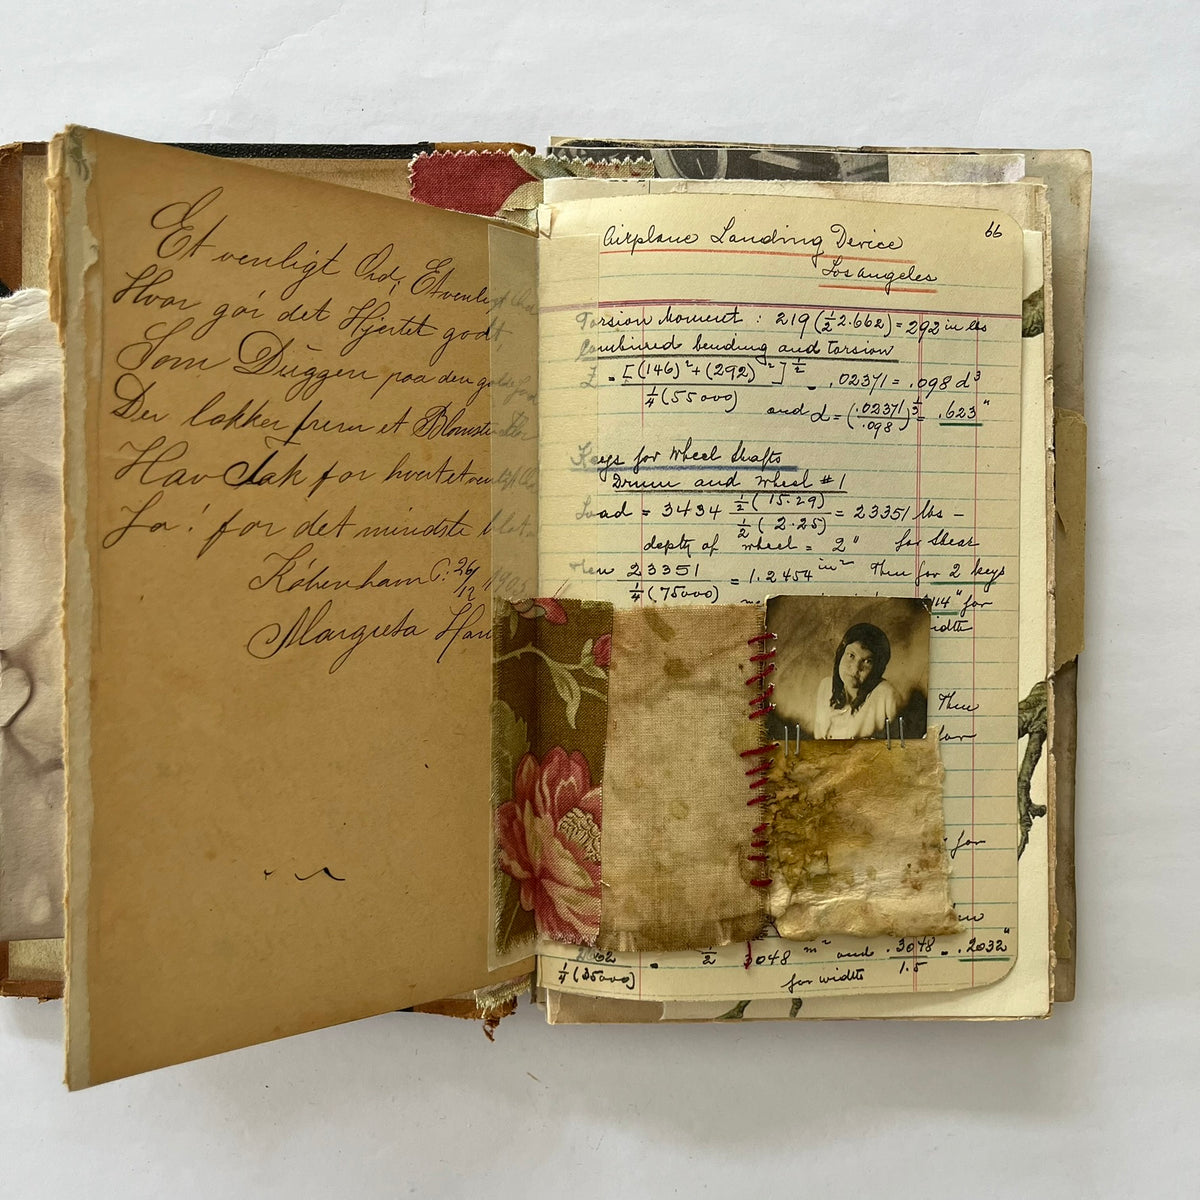 Et venligt Ord, Et venligt
Hvor gør det Hjertet godt,
Som Duggen paa den
Der lokker frem et Blomster
Hav Tak for hvert et venligt
Ja! for det mindste
København C: 26/12 1905
Margreta
66
Airplane Landing Device
Los Angeles
Torsion Moment : 219 (½ 2.662) = 292 in lbs
Combined bending and Torsion
[(146)² + (292)²]^½ / ¼(55000) = .02371 = .098 d³
and d = (.02371/.098)^⅓ = .623"
Keys for Wheel Shafts
Drum and Wheel #1
Load = 3434 ½(15.29) / ½(2.25) = 23351 lbs -
depth of wheel = 2" for shear
Then 23351 / ¼(75000) = 1.2454 in² Then for 2 keys
for
width
Then
for
for
¼(35000) = ½ 3048 in² and .3048/1.5 = .2032"
for width